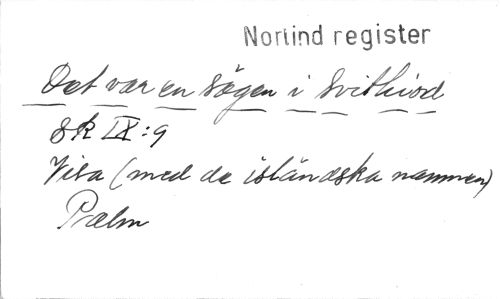 Norlind register
Det var en sägen i Svithiod
SR IX:9
Visa (med de isländska namnen)
Psalm